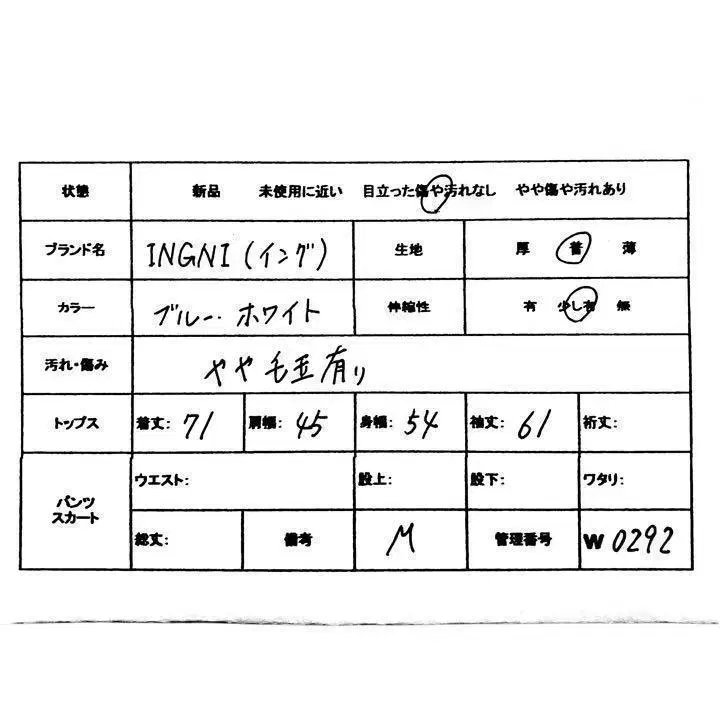 状態 新品 未使用に近い 目立った傷や汚れなし やや傷や汚れあり
ブランド名 INGNI(イング) 生地 厚 普 薄
カラー ブルー・ホワイト 伸縮性 有 少し有 無
汚れ・傷み やや毛玉有り
トップス 着丈: 71 肩幅: 45 身幅: 54 袖丈: 61 裄丈:
パンツ スカート ウエスト: 股上: 股下: ワタリ:
総丈: 備考 M 管理番号 W 0292